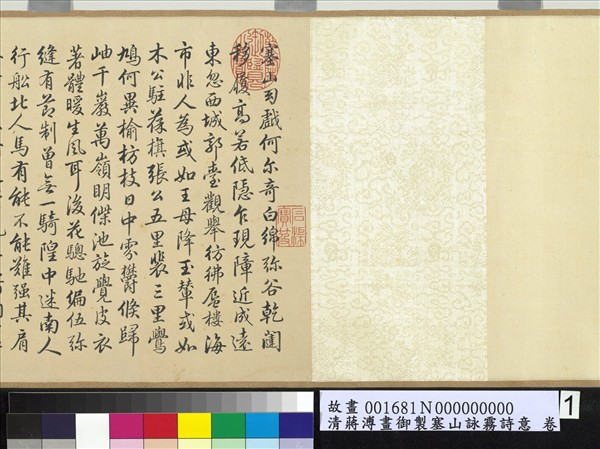 塞山幻戲何尔奇白綿弥谷乾闥
移履高若低隱乍現障近成遠
東忽西城郭臺觀舉彷彿蜃樓海
市非人為或如王母降玉輦或如
木公駐葆旗張公五里裴三里鷽
鳩何異榆枋枝日中霧鬱倏歸
岫千巖萬嶺明傑池旋覺皮衣
著體暖生風耳後花驄馳編伍弥
縫有節制曾無一騎隍中迷南人
行船北人馬有能不能難强其肩
石渠寶笈
故畫 001681N000000000
清蔣溥畫御製塞山詠霧詩意 卷
1